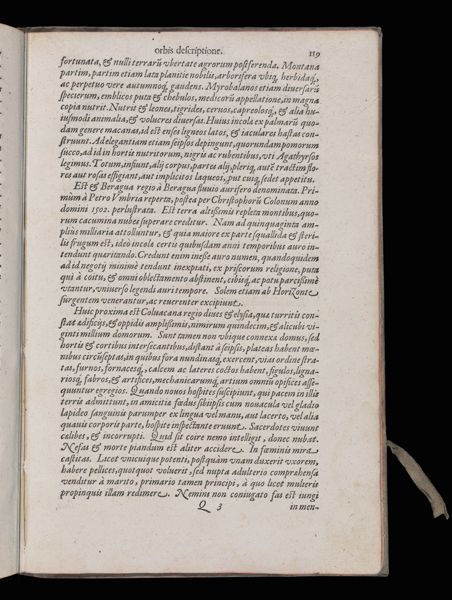 orbis descriptione. 119
fortunata, & nulli terrarũ vbertate agrorum postferenda. Montana
partim, partim etiam lata planitie nobilis, arborifera vbiq;, herbidaq;,
ac perpetuo vere autumnoq; gaudens. Myrobalanos etiam diuersarũ
specierum, emblicos puta & chebulos, medicorũ appellatione, in magna
copia nutrit. Nutrit & leones, tigrides, ceruos, capreolosq;, & alia hu-
iusmodi animalia, & volucres diuersas. Huius incolæ ex palmarũ quo-
dam genere macanas, id est enses ligneos latos, & iaculares hastas con-
struunt. Ad elegantiam etiam seipsos depingunt, quorundam pomorum
succo, ad id in hortis nutritorum, nigris ac rubentibus, vti Agathyrsos
legimus. Totum, insunt, alij corpus, partes alij, pleriq; autẽ tractim flo-
res aut rosas effigiant, aut implicitos laqueos, put cuiq; sedet appetitu.
Est & Beragua regio à Beragua fluuio aurifero denominata. Pri-
mùm à Petro Vmbria reperta, postea per Christophorũ Colonum anno
domini 1502. perlustrata. Est terra altissimis repleta montibus, quo-
rum cacumina nubes superare creditur. Nam ad quinquaginta am-
plius milliaria attolluntur, & quia maiore ex parte squallida & steri-
lis frugum est, ideò incolæ certis quibusdam anni temporibus auro in-
tendunt quæritando. Credunt enim inesse auro numen, quandoquidem
ad id negotij minimè tendunt inexpiati, ex priscorum religione, puta
qui à coitu, & omni oblectamento abstinent, cibisq; ac potu parcissimè
vtantur, vniuerso legendi auri tempore. Solem etiam ab Horizonte
surgentem venerantur, ac reuerenter excipiunt.
Huic proxima est Coluacana regio diues & elysia, quæ turritis con-
stat ædificijs, & oppidis amplissimis, nimirum quindecim, & alicubi vi-
ginti millium domorum. Sunt tamen non vbique connexæ domus, sed
hortis & cortibus intersecantibus, distant à seipsis, plateas habent mœ-
nibus circũseptas, in quibus fora nundinasq; exercent, vias ordine stra-
tas, furnos, fornacesq;, calcem ac lateres coctos habent, figulos, ligna-
riosq; fabros, & artifices, mechanicarumq; artium omniũ opifices asse-
quuntur egregios. Quando nouos hospites suscipiunt, qui pacem in illis
terris admittunt, in amicitiæ fœdus sibiipsis cum nouacula vel gladio
lapideo sanguinis parumper ex lingua vel manu, aut lacerto, vel alia
quauis corporis parte, hospite inspectante eruunt. Sacerdotes viuunt
cœlibes, & incorrupti. Quid sit coire nemo intelligit, donec nubat.
Nefas & morte piandum est aliter accidere. In fœminis mira
castitas. Licet vnicuique potenti, postquàm vnam duxerit vxorem,
habere pellices, quotquot voluerit, sed nupta adulterio comprehensa
venditur à marito, primario tamen principi, à quo licet mulieris
propinquis illam redimere. Nemini non coniugato fas est iungi
Q 3 in men-